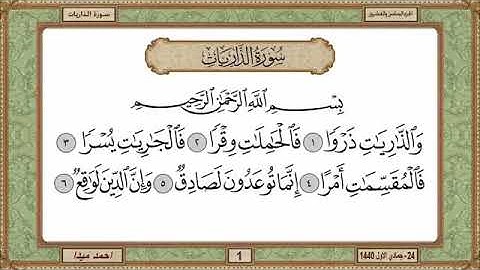 الجزء السادس والعشرون
سورة الذاريات
سُورَةُ الذَّارِيَاتِ
بِسْمِ اللَّهِ الرَّحْمَٰنِ الرَّحِيمِ
وَالذَّارِيَاتِ ذَرْوًا ١ فَالْحَامِلَاتِ وِقْرًا ٢ فَالْجَارِيَاتِ يُسْرًا ٣
فَالْمُقَسِّمَاتِ أَمْرًا ٤ إِنَّمَا تُوعَدُونَ لَصَادِقٌ ٥ وَإِنَّ الدِّينَ لَوَاقِعٌ ٦
24 - جمادى الاول 1440
1